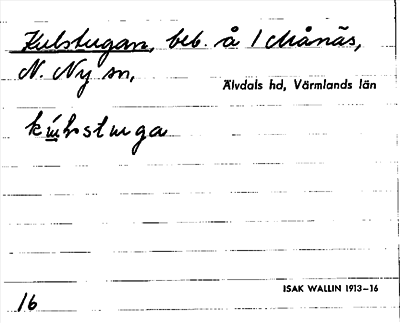 Kulstugan, beb. å 1 Månäs,
N. Ny sn,
Älvdals hd, Värmlands län
ISAK WALLIN 1913–16
16